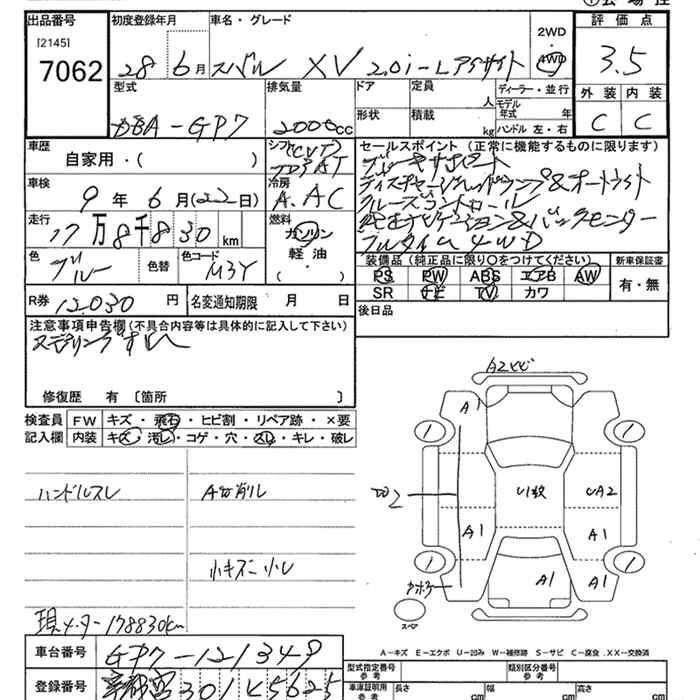 出品番号
[2145]
7062
初度登録年月
28年6月
車名・グレード
スバル XV 2.0i-L アイサイト
2WD
4WD
評価点
3.5
外装 内装
C C
型式
DBA-GP7
排気量
2000cc
ドア
形状
定員
人
積載
kg
ディーラー・並行
モデル年式 年
ハンドル 左・右
車歴
自家用・( )
シフト(CVT)
冷房
A.AC
車検
9年6月(22日)
走行
17万8千830km
燃料
ガソリン
軽油
( ・ )
色
ブルー
色替
色コード
M3Y
R券 12.030円
名変通知期限 月 日
セールスポイント(正常に機能するものに限ります)
ディスチャージヘッドランプ&オートライト
クルーズコントロール
純正ナビゲーション&バックモニター
フルタイム4WD
装備品(純正品に限り○をつけてください)
PS PW ABS エアB AW
SR ナビ TV カワ
新車保証書
有・無
後日品
注意事項申告欄(不具合内容等は具体的に記入して下さい)
ステアリングすれ
修復歴 有 〔箇所 〕
検査員記入欄
FW キズ・飛石・ヒビ割・リペア跡・×要
内装 キズ・汚レ・コゲ・穴・スレ・キレ・破レ
ハンドルスレ
小キズ 小凹
現メーター178830km
車台番号 GP7-121349
登録番号
A1
1
1
U1数
UA2
W2
A1
A1
1
1
A1
A1
スペア
A-キズ E-エクボ U-凹み W-補修跡 S-サビ C-腐食 XX-交換済
型式指定番号
参考
類別区分番号
参考
車庫証明用
参考
長さ cm
幅 cm
高さ cm